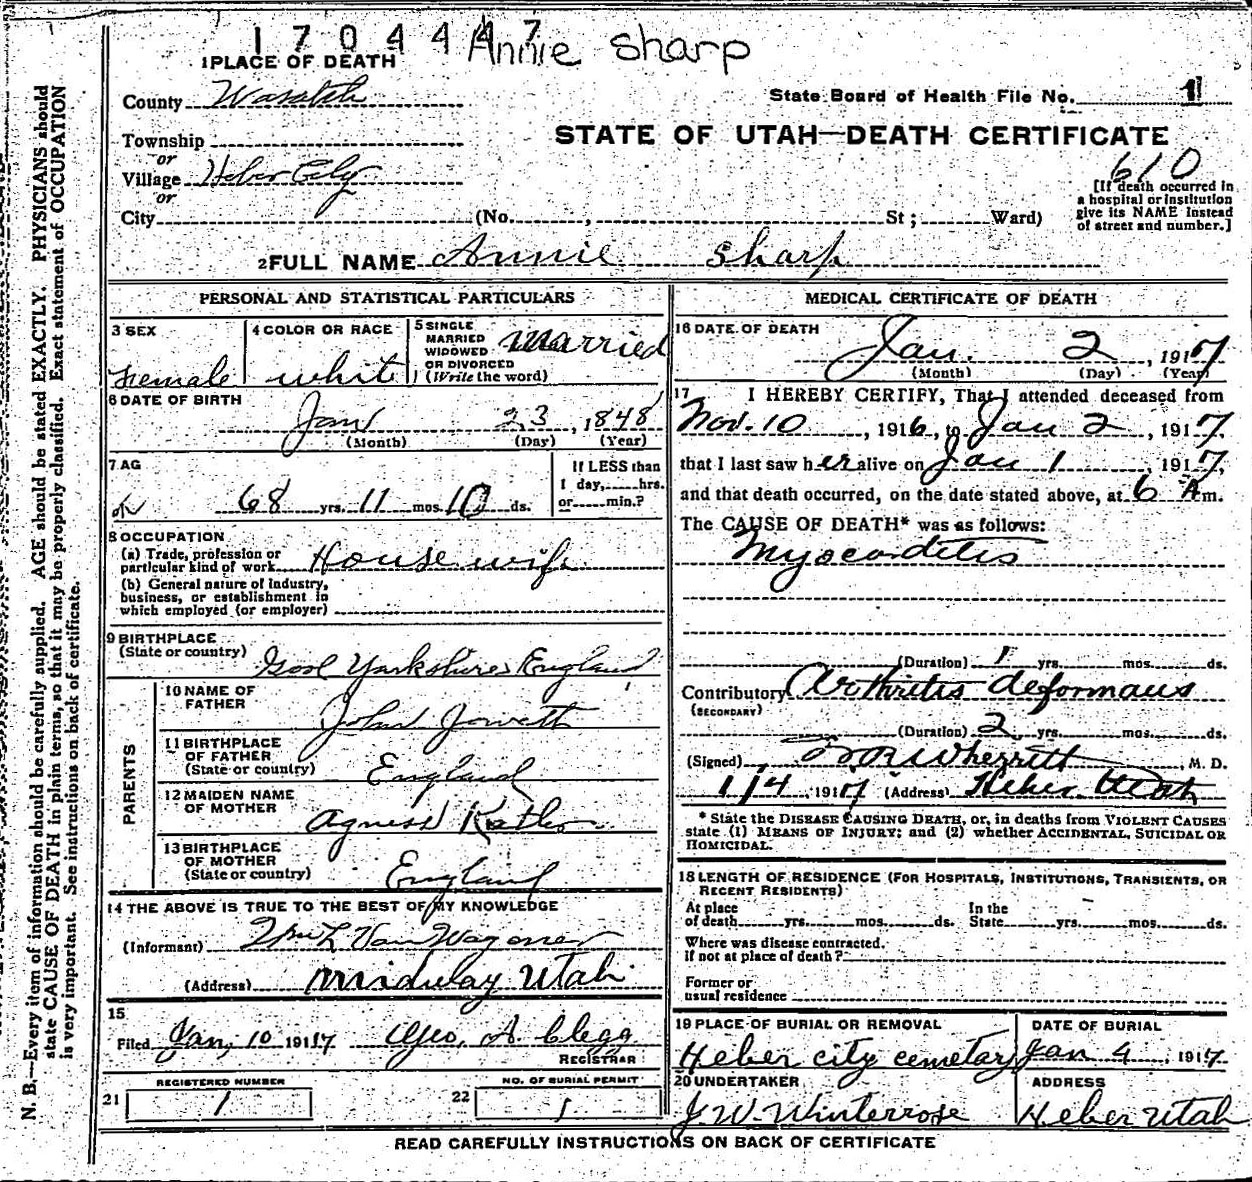 1704447 Annie Sharp
1 PLACE OF DEATH
County Wasatch
State Board of Health File No. 1
STATE OF UTAH—DEATH CERTIFICATE
Township
or
Village Heber City
or
610
[If death occurred in
a hospital or institution
give its NAME instead
of street and number.]
City (No. , St; Ward)
2 FULL NAME Annie Sharp
PERSONAL AND STATISTICAL PARTICULARS
3 SEX
Female
4 COLOR OR RACE
white
5 SINGLE
MARRIED
WIDOWED
OR DIVORCED
(Write the word)
Married
6 DATE OF BIRTH
Jan 23, 1848
(Month) (Day) (Year)
7 AG
68 yrs. 11 mos. 10 ds.
If LESS than
1 day, hrs.
or min.?
8 OCCUPATION
(a) Trade, profession or
particular kind of work House wife
(b) General nature of industry,
business, or establishment in
which employed (or employer)
9 BIRTHPLACE
(State or country) Gool Yarkshire England
PARENTS
10 NAME OF
FATHER
John Jowett
11 BIRTHPLACE
OF FATHER
(State or country) England
12 MAIDEN NAME
OF MOTHER
Agness
13 BIRTHPLACE
OF MOTHER
(State or country) England
14 THE ABOVE IS TRUE TO THE BEST OF MY KNOWLEDGE
(Informant) Wm L Van Wagoner
(Address) Midway Utah
15
Filed Jan, 10 1917 Geo. A. Clegg
REGISTRAR
REGISTERED NUMBER
21 1
NO. OF BURIAL PERMIT
22 1
MEDICAL CERTIFICATE OF DEATH
16 DATE OF DEATH
Jan. 2, 1917
(Month) (Day) (Year)
17 I HEREBY CERTIFY, That I attended deceased from
Nov. 10, 1916, to Jan 2, 1917,
that I last saw her alive on Jan 1, 1917,
and that death occurred, on the date stated above, at 6 Am.
The CAUSE OF DEATH* was as follows:
Myocarditis
(Duration) 1 yrs. mos. ds.
Contributory Arthritis deformans
(SECONDARY)
(Duration) 2 yrs. mos. ds.
(Signed) Wherritt, M. D.
1/4, 1917 (Address) Heber Utah
* State the DISEASE CAUSING DEATH, or, in deaths from VIOLENT CAUSES
state (1) MEANS OF INJURY; and (2) whether ACCIDENTAL, SUICIDAL OR
HOMICIDAL.
18 LENGTH OF RESIDENCE (FOR HOSPITALS, INSTITUTIONS, TRANSIENTS, OR
RECENT RESIDENTS)
At place
of death yrs. mos. ds.
In the
State yrs. mos. ds.
Where was disease contracted.
if not at place of death?
Former or
usual residence
19 PLACE OF BURIAL OR REMOVAL
Heber city cemetary
DATE OF BURIAL
Jan 4, 1917
20 UNDERTAKER
J. W. Winterrose
ADDRESS
Heber Utah
READ CAREFULLY INSTRUCTIONS ON BACK OF CERTIFICATE
N. B.—Every item of information should be carefully supplied. AGE should be stated EXACTLY. PHYSICIANS should
state CAUSE OF DEATH in plain terms, so that it may be properly classified. Exact statement of OCCUPATION
is very important. See instructions on back of certificate.